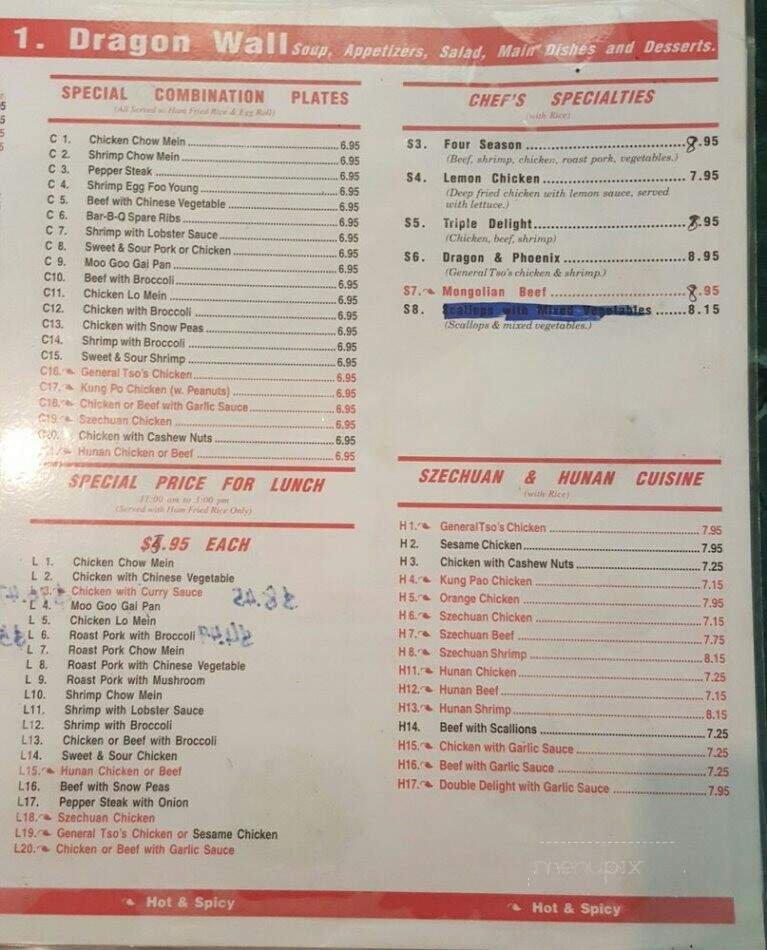 1. Dragon Wall Soup, Appetizers, Salad, Main Dishes and Desserts.
SPECIAL COMBINATION PLATES
(All Served w. Ham Fried Rice & Egg Roll)
C 1. Chicken Chow Mein 6.95
C 2. Shrimp Chow Mein 6.95
C 3. Pepper Steak 6.95
C 4. Shrimp Egg Foo Young 6.95
C 5. Beef with Chinese Vegetable 6.95
C 6. Bar-B-Q Spare Ribs 6.95
C 7. Shrimp with Lobster Sauce 6.95
C 8. Sweet & Sour Pork or Chicken 6.95
C 9. Moo Goo Gai Pan 6.95
C10. Beef with Broccoli 6.95
C11. Chicken Lo Mein 6.95
C12. Chicken with Broccoli 6.95
C13. Chicken with Snow Peas 6.95
C14. Shrimp with Broccoli 6.95
C15. Sweet & Sour Shrimp 6.95
C16. General Tso's Chicken 6.95
C17. Kung Po Chicken (w. Peanuts) 6.95
C18. Chicken or Beef with Garlic Sauce 6.95
C19 Szechuan Chicken 6.95
C20. Chicken with Cashew Nuts 6.95
Hunan Chicken or Beef 6.95
SPECIAL PRICE FOR LUNCH
11:00 am to 3:00 pm
(Served with Ham Fried Rice Only)
.95 EACH
L 1. Chicken Chow Mein
L 2. Chicken with Chinese Vegetable
L 3. Chicken with Curry Sauce
L 4. Moo Goo Gai Pan
L 5. Chicken Lo Mein
L 6. Roast Pork with Broccoli
L 7. Roast Pork Chow Mein
L 8. Roast Pork with Chinese Vegetable
L 9. Roast Pork with Mushroom
L10. Shrimp Chow Mein
L11. Shrimp with Lobster Sauce
L12. Shrimp with Broccoli
L13. Chicken or Beef with Broccoli
L14. Sweet & Sour Chicken
L15. Hunan Chicken or Beef
L16. Beef with Snow Peas
L17. Pepper Steak with Onion
L18. Szechuan Chicken
L19. General Tso's Chicken or Sesame Chicken
L20. Chicken or Beef with Garlic Sauce
Hot & Spicy
CHEF'S SPECIALTIES
(with Rice)
S3. Four Season 8.95
(Beef, shrimp, chicken, roast pork, vegetables.)
S4. Lemon Chicken 7.95
(Deep fried chicken with lemon sauce, served
with lettuce.)
S5. Triple Delight 8.95
(Chicken, beef, shrimp)
S6. Dragon & Phoenix 8.95
(General Tso's chicken & shrimp.)
S7. Mongolian Beef 8.95
S8. Scallops with Mixed Vegetables 8.15
(Scallops & mixed vegetables.)
SZECHUAN & HUNAN CUISINE
(with Rice)
H1. General Tso's Chicken 7.95
H 2. Sesame Chicken 7.95
H 3. Chicken with Cashew Nuts 7.25
H 4. Kung Pao Chicken 7.15
H 5. Orange Chicken 7.95
H 6. Szechuan Chicken 7.15
H 7. Szechuan Beef 7.75
H 8. Szechuan Shrimp 8.15
H11. Hunan Chicken 7.25
H12. Hunan Beef 7.15
H13. Hunan Shrimp 8.15
H14. Beef with Scallions 7.25
H15. Chicken with Garlic Sauce 7.25
H16. Beef with Garlic Sauce 7.25
H17. Double Delight with Garlic Sauce 7.95
menupix
Hot & Spicy